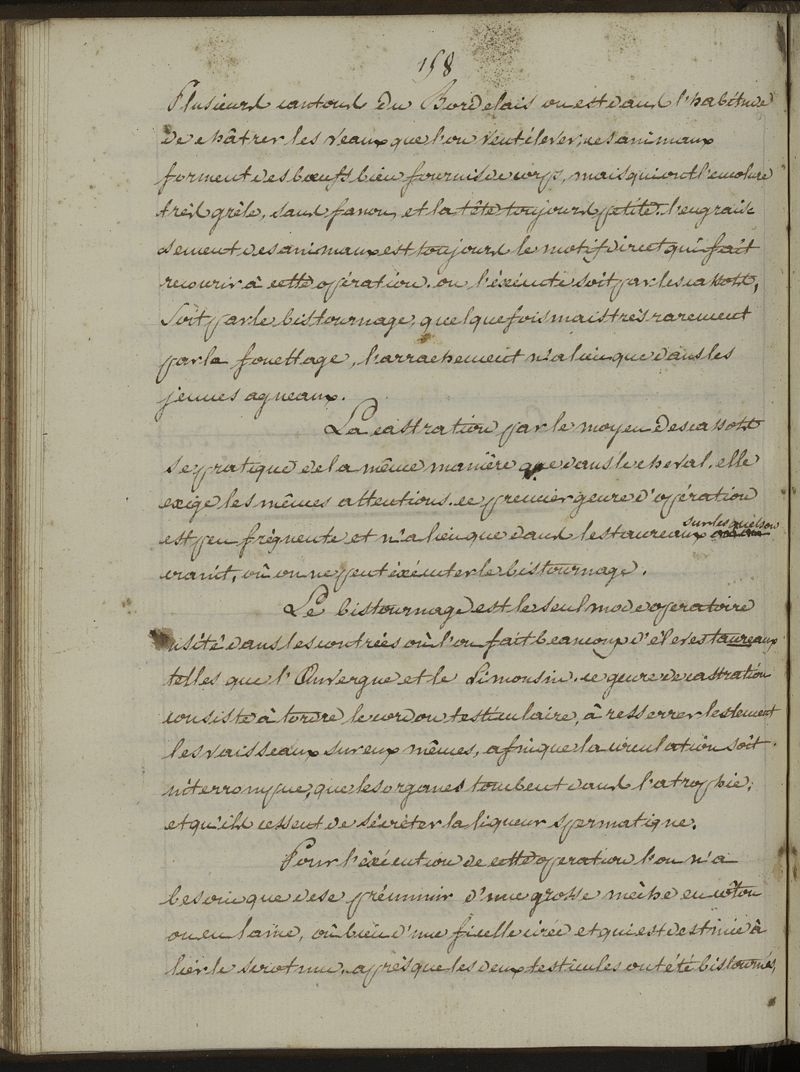 158
Plusieurs cantons du Bordelais on est dans l'habitude
de châtrer les veaux que l'on veut élever, ces animaux
forment des bœufs bien fournis de corps, mais qui ont l'encolure
très grêle, sans fanon, et la tête toujours petite. l'engrais
sement des animaux est toujours le motif direct qui fait
recourir à cette opération. on l'éxécute soit par les cassots,
soit par le bistournage, quelque fois mais très rarement
par le fouettage, l'arrachement n'a lieu que dans les
jeunes agneaux.
La castration par le moyen des cassots
se pratique de la même manière que dans le cheval. elle
exige les mêmes attentions. ce premier genre d'opération
est peu fréquente et n'a lieu que dans les taureaux
sur lesquels on
craint, où on ne peut éxécuter le bistournage.
Le bistournage est le seul mode operatoire
usité dans les contrées où l'on fait beaucoup d'élèves taureaux
telles que l'Auvergne et le Limousin. ce genre de castration
consiste à tordre le cordon testiculaire, à resserrer lestement
les vaisseaux sur eux mêmes, afin que la circulation soit
interrompue, que les organes tombent dans l'atrophie,
et qu'ils cessent de sécréter la liqueur spermatique.
Pour l'éxécution de cette operation l'on n'a
besoin que de se prémunir d'une grosse mèche en côton
ou en laine, où bien d'une ficelle cirée et qui est destinée à
lier le scrotum, après que les deux testicules ont été bistournés,